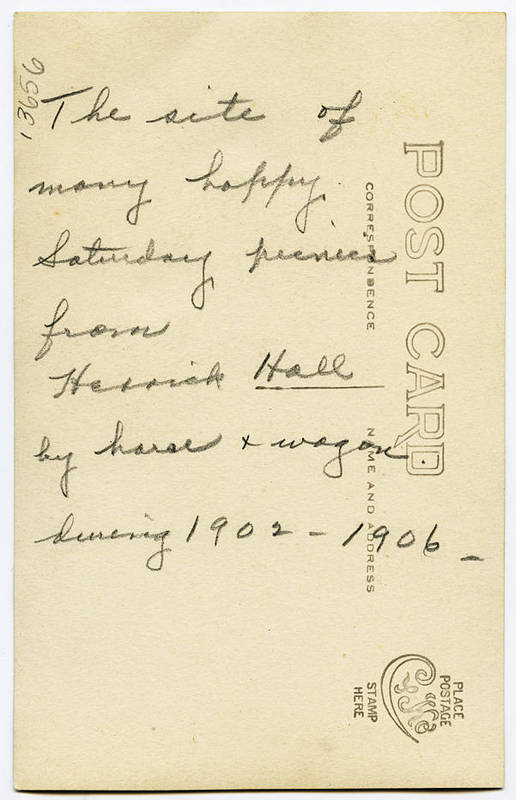 13656
The site of
many happy
Saturday picnics
from
Herrick Hall
by horse + wagon
during 1902 - 1906 -
POST CARD
CORRESPONDENCE
NAME AND ADDRESS
PLACE
POSTAGE
STAMP
HERE